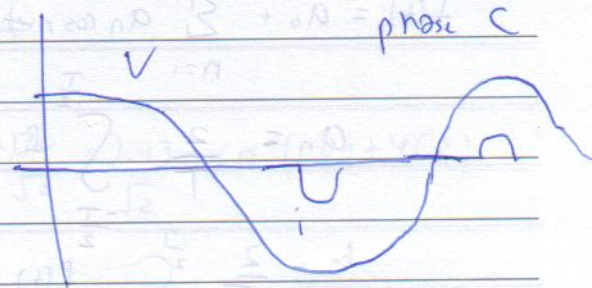 phase C
V
i